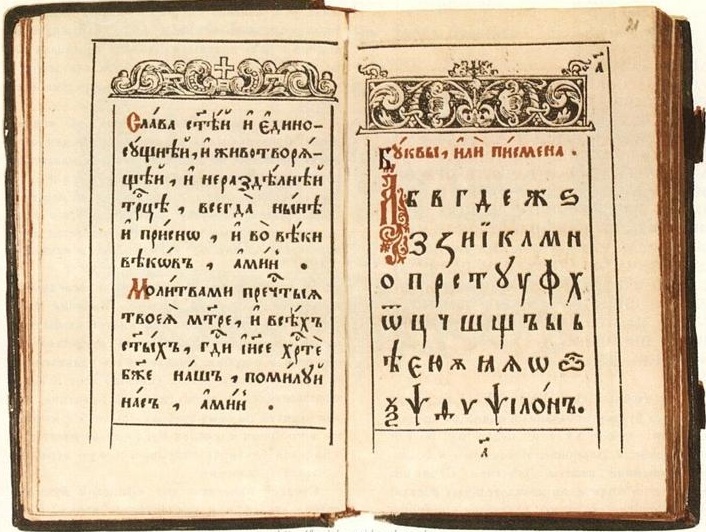 Сла́ва ст҃ѣ́й и҆ є҆ди́но-
су́щнѣй, и҆ животворѧ́-
щѣй, и҆ нераздѣ́лнѣй
трⷪ҇цѣ, всегда̀ ны́нѣ
и҆ при́снѡ, и҆ во̀ вѣ́ки
вѣкѡ́въ, а҆ми́нь.
Моли́твами преч҃тыѧ
твоеѧ̀ мт҃ре, и҆ всѣ́хъ
ст҃ы́хъ, гд҇и і҆и҃се хрⷭ҇тѐ
бж҃е на́шъ, поми́лꙋй
на́съ, а҆ми́нь.
21
Бꙋ́квы, и҆лѝ пи́смена.
А б в г д е ж ѕ
з ꙁ и ї к л м н
о п р с т ѹ ꙋ ф х
ѿ ц ч ш щ ъ ы ь
ѣ є ю ѫ ꙗ ѧ ѡ
ѯ ѱ ѳ ѵ ѱїло́нъ.